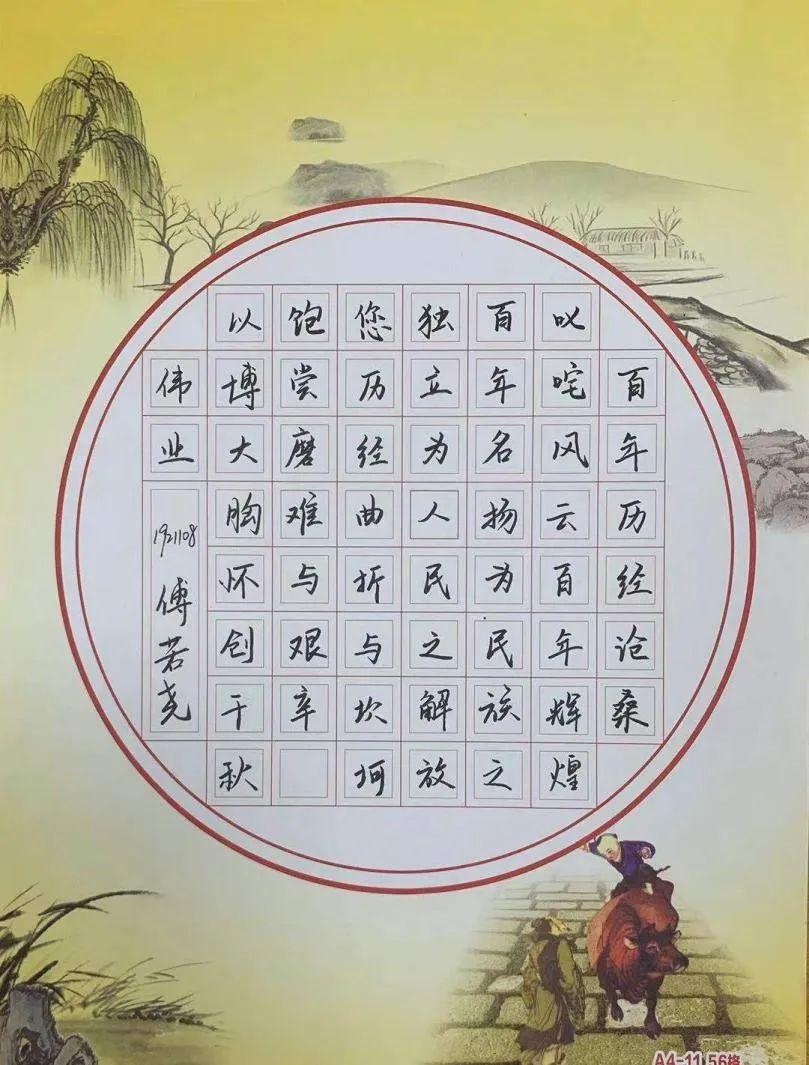 百年历经沧桑
叱咤风云百年辉煌
百年名扬为民族之
独立为人民之解放
您历经曲折与坎坷
饱尝磨难与艰辛
以博大胸怀创千秋
伟业
1921108 傅若尧
A4-11 56格